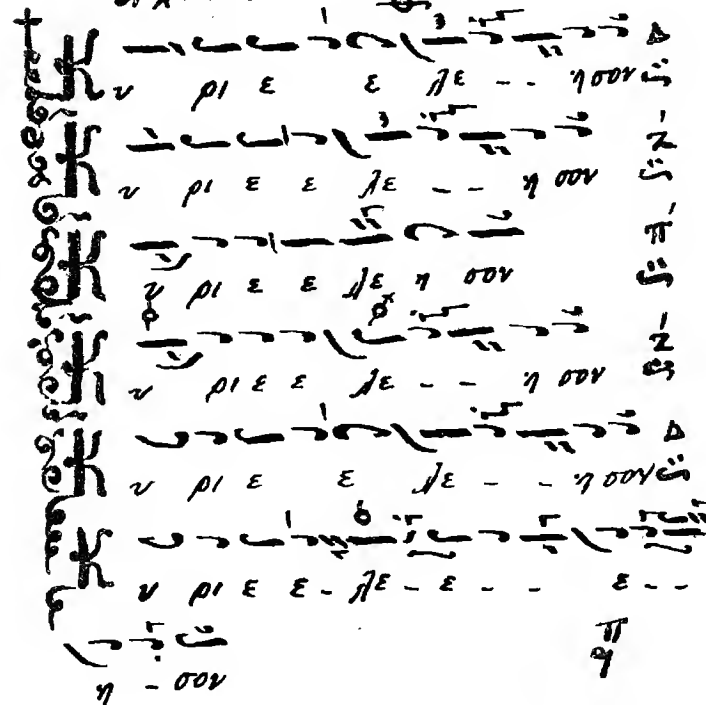 Κυ ρι ε ε λε - - η σον Δ
Κυ ρι ε ε λε - - η σον Ζ
Κυ ρι ε ε λε η σον π
Κυ ρι ε ε λε - - η σον Ζ
Κυ ρι ε ε λε - - η σον Δ
Κυ ρι ε ε - λε - ε - - ε - -
η - σον π